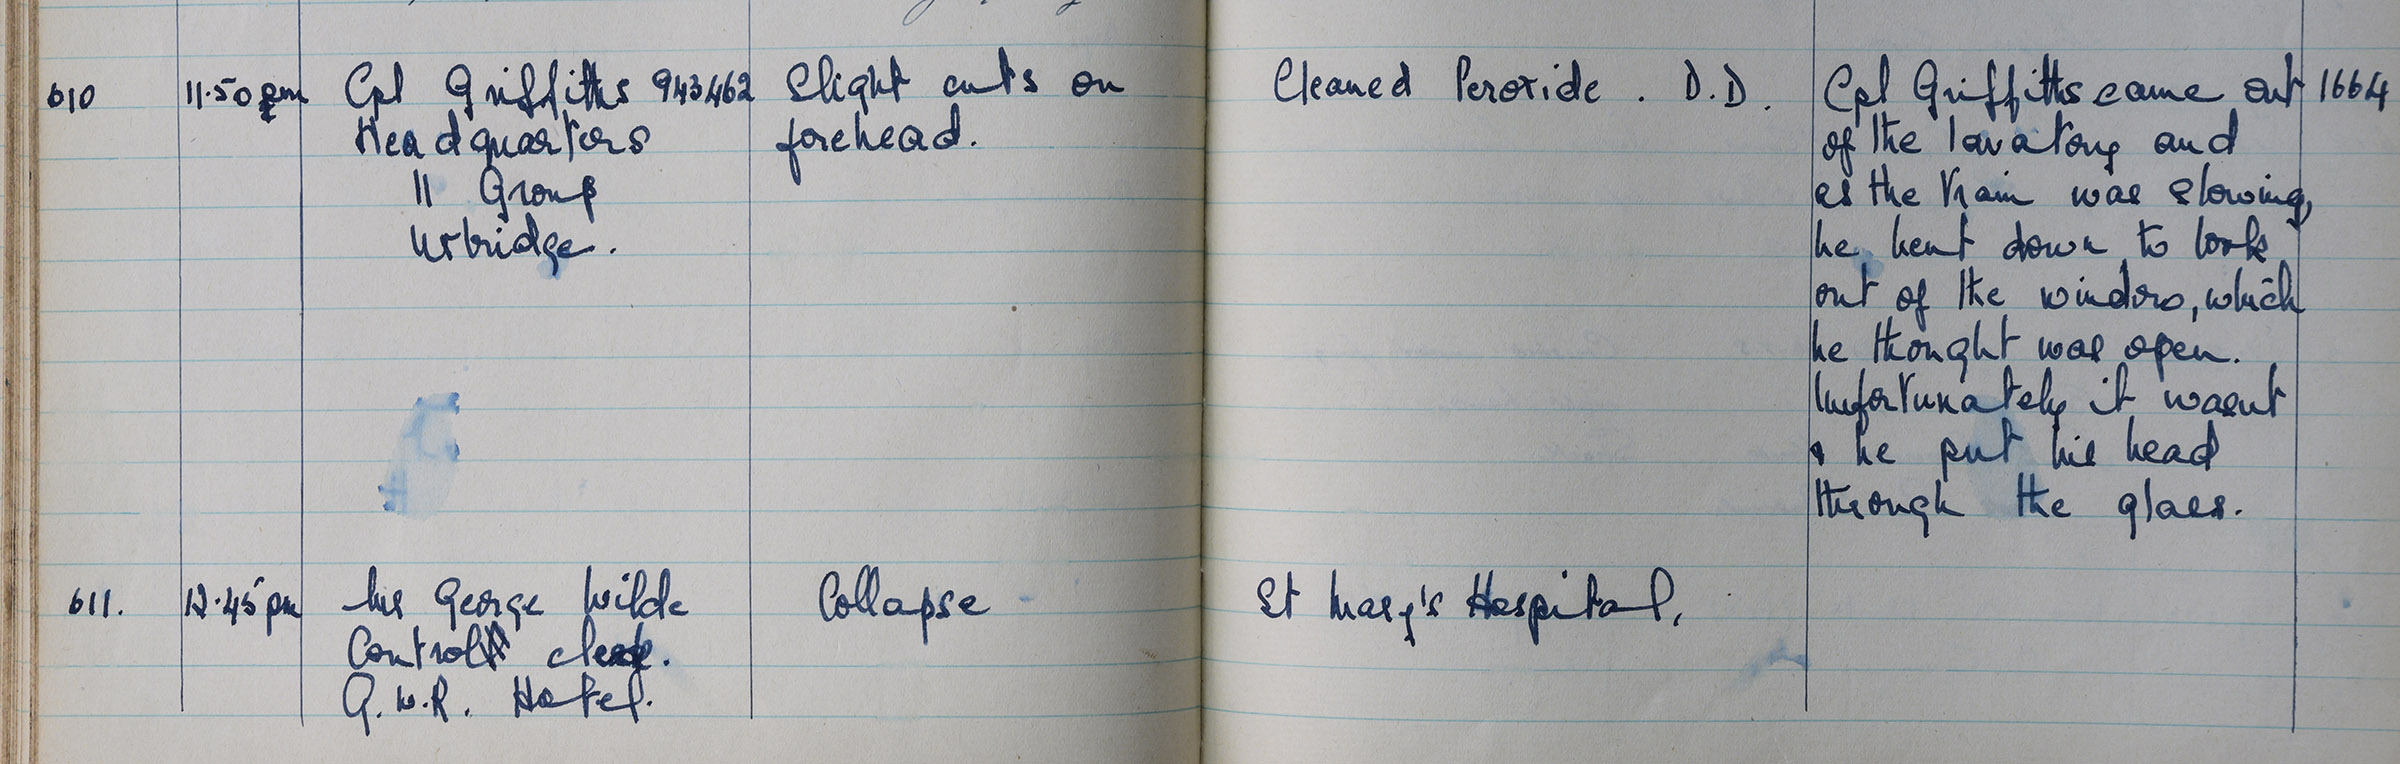 610 11.50 pm Cpl Griffiths 943462 Slight cuts on Cleaned Peroxide . D.D. Cpl Griffiths came out 1664
Headquarters forehead. of the lavatory and
11 Group as the train was slowing,
Uxbridge. he bent down to look
out of the window, which
he thought was open.
Unfortunately it wasnt
& he put his head
through the glass.
611. 12.45 pm Mr George Wilde Collapse St Mary's Hospital.
Control clerk.
G.W.R. Hotel.